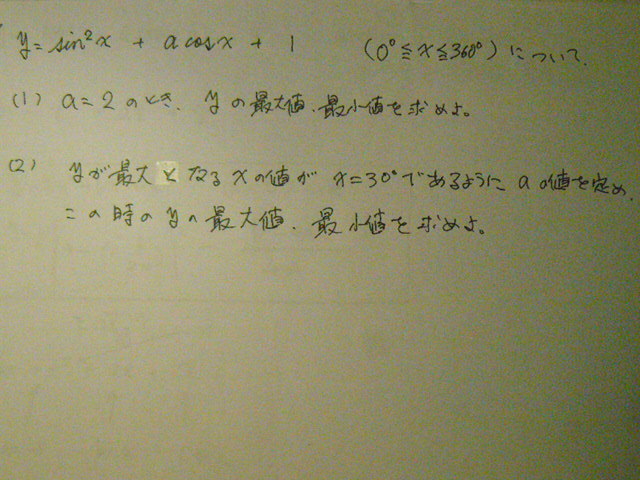 y = sin²x + a cos x + 1 (0° ≦ x ≦ 360°) について.
(1) a = 2 のとき、y の最大値、最小値を求めよ。
(2) yが最大となるxの値が x = 30° であるように a の値を定め、
この時の y の最大値、最小値を求めよ。